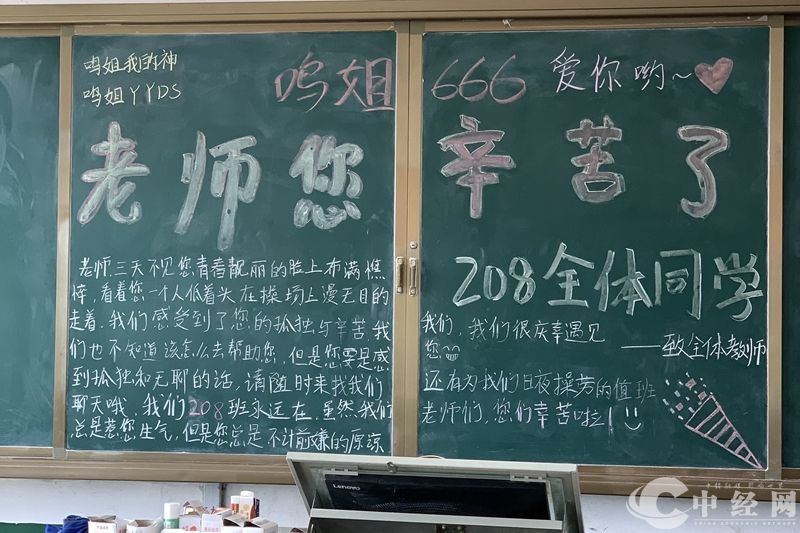 鸣姐我的神
鸣姐YYDS
鸣姐 666 爱你哟~
老师您辛苦了
老师,三天不见您青春靓丽的脸上布满憔
悴,看着您一个人低着头在操场上漫无目的
走着.我们感受到了您的孤独与辛苦我
们也不知道该怎么去帮助您,但是您要是感
到孤独和无聊的话,请随时来找我们
聊天哦,我们208班永远在,虽然我们
总是惹您生气,但是您总是不计前嫌的原谅
208全体同学
我们,我们很庆幸遇见
您
——致全体教师
还有为我们日夜操劳的值班
老师们,您们辛苦啦!
Lenovo
中经网